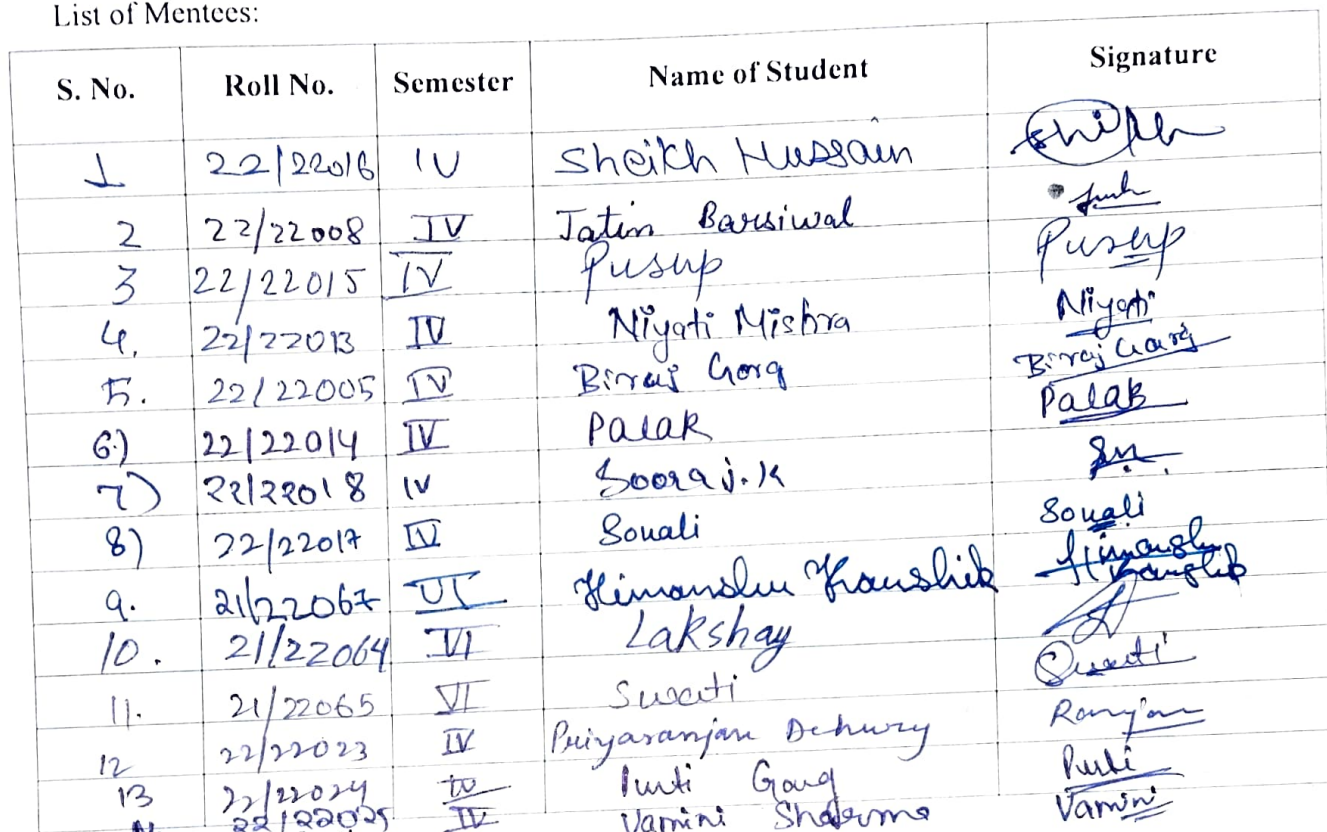 List of Mentees:
S. No. Roll No. Semester Name of Student Signature
1 22/22016 IV Sheikh Hussain
2 22/22008 IV Jatin Barsiwal
3 22/22015 IV Pusup Pusup
4. 22/22013 IV Niyati Mishra Niyati
5. 22/22005 IV Biraj Garg Biraj Garg
6.) 22/22014 IV Palak Palak
7) 22/22018 IV Sooraj.K
8) 22/22017 IV Sonali Sonali
9. 21/22067 VI Himanshu Kaushik Himanshu Kaushik
10. 21/22064 VI Lakshay
11. 21/22065 VI Swati Swati
12 22/22023 IV Priyaranjan Dehury Ranjan
13 22/22024 IV Garg
22/22025 IV Vamini Sharma Vamini